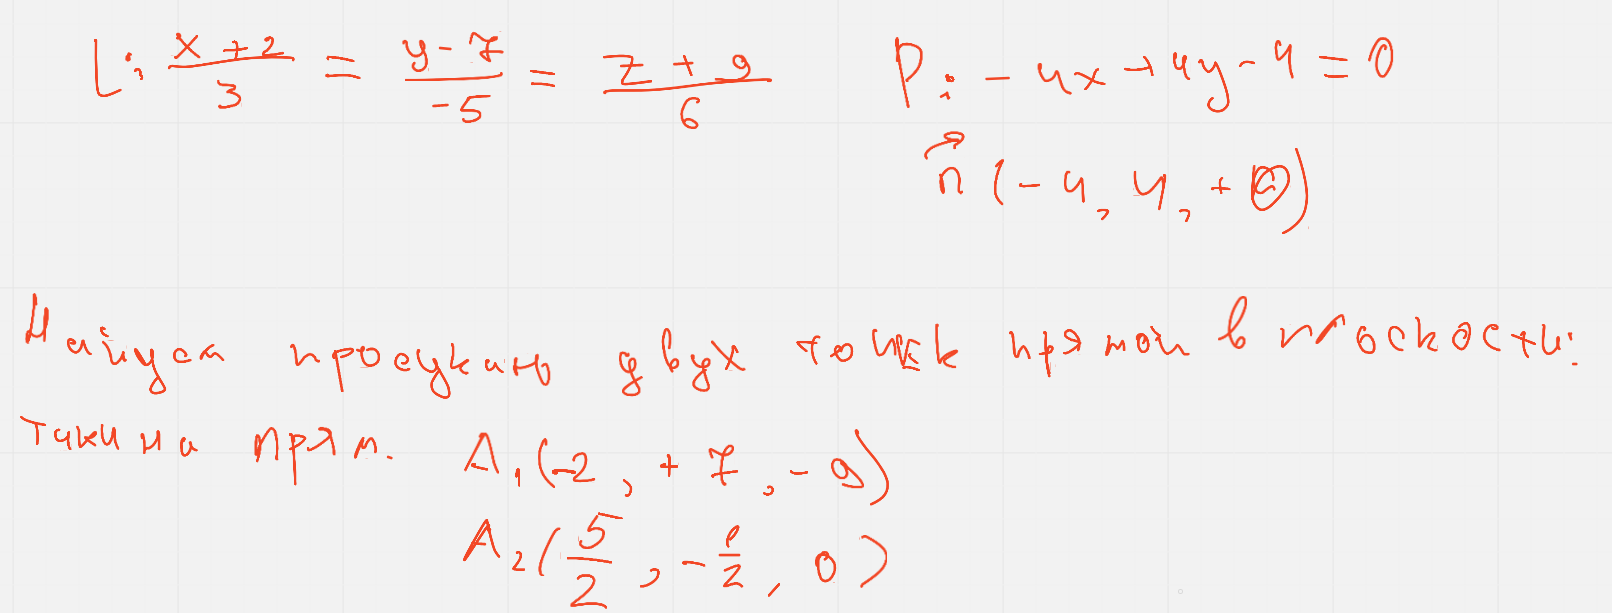 L: \frac{x+2}{3} = \frac{y-7}{-5} = \frac{z+9}{6} P: -4x+4y-4=0
\vec{n} (-4, 4, +0)
Найдем проекцию двух точек прямой в плоскости:
Точки на прям. A_1(-2, +7, -9)
A_2(\frac{5}{2}, -\frac{1}{2}, 0)